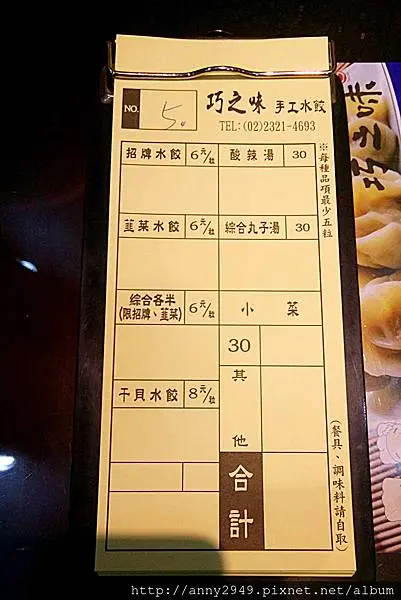 NO. 5. 巧之味 手工水餃
TEL:(02)2321-4693
招牌水餃 6元/粒 酸辣湯 30
韮菜水餃 6元/粒 綜合丸子湯 30
綜合各半
(限招牌、韮菜) 6元/粒 小菜
30
其他
干貝水餃 8元/粒
合計
※每種品項最少五粒
(餐具、調味料請自取)
巧之味
http://anny2949.pixnet.net/album